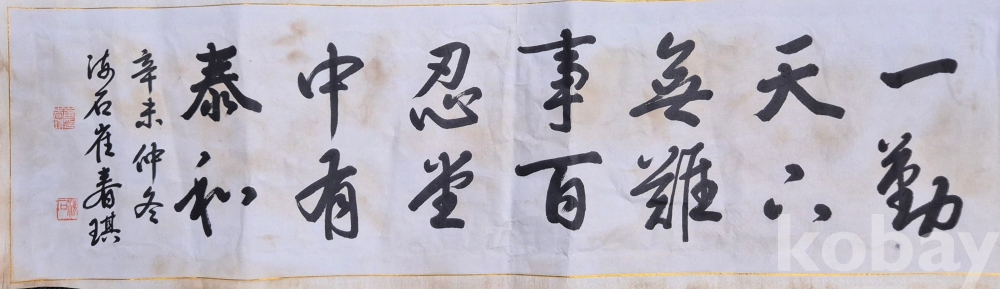 一勤
天下
無難
事百
忍堂
中有
泰和
辛未仲冬
海石崔春琪
kobay